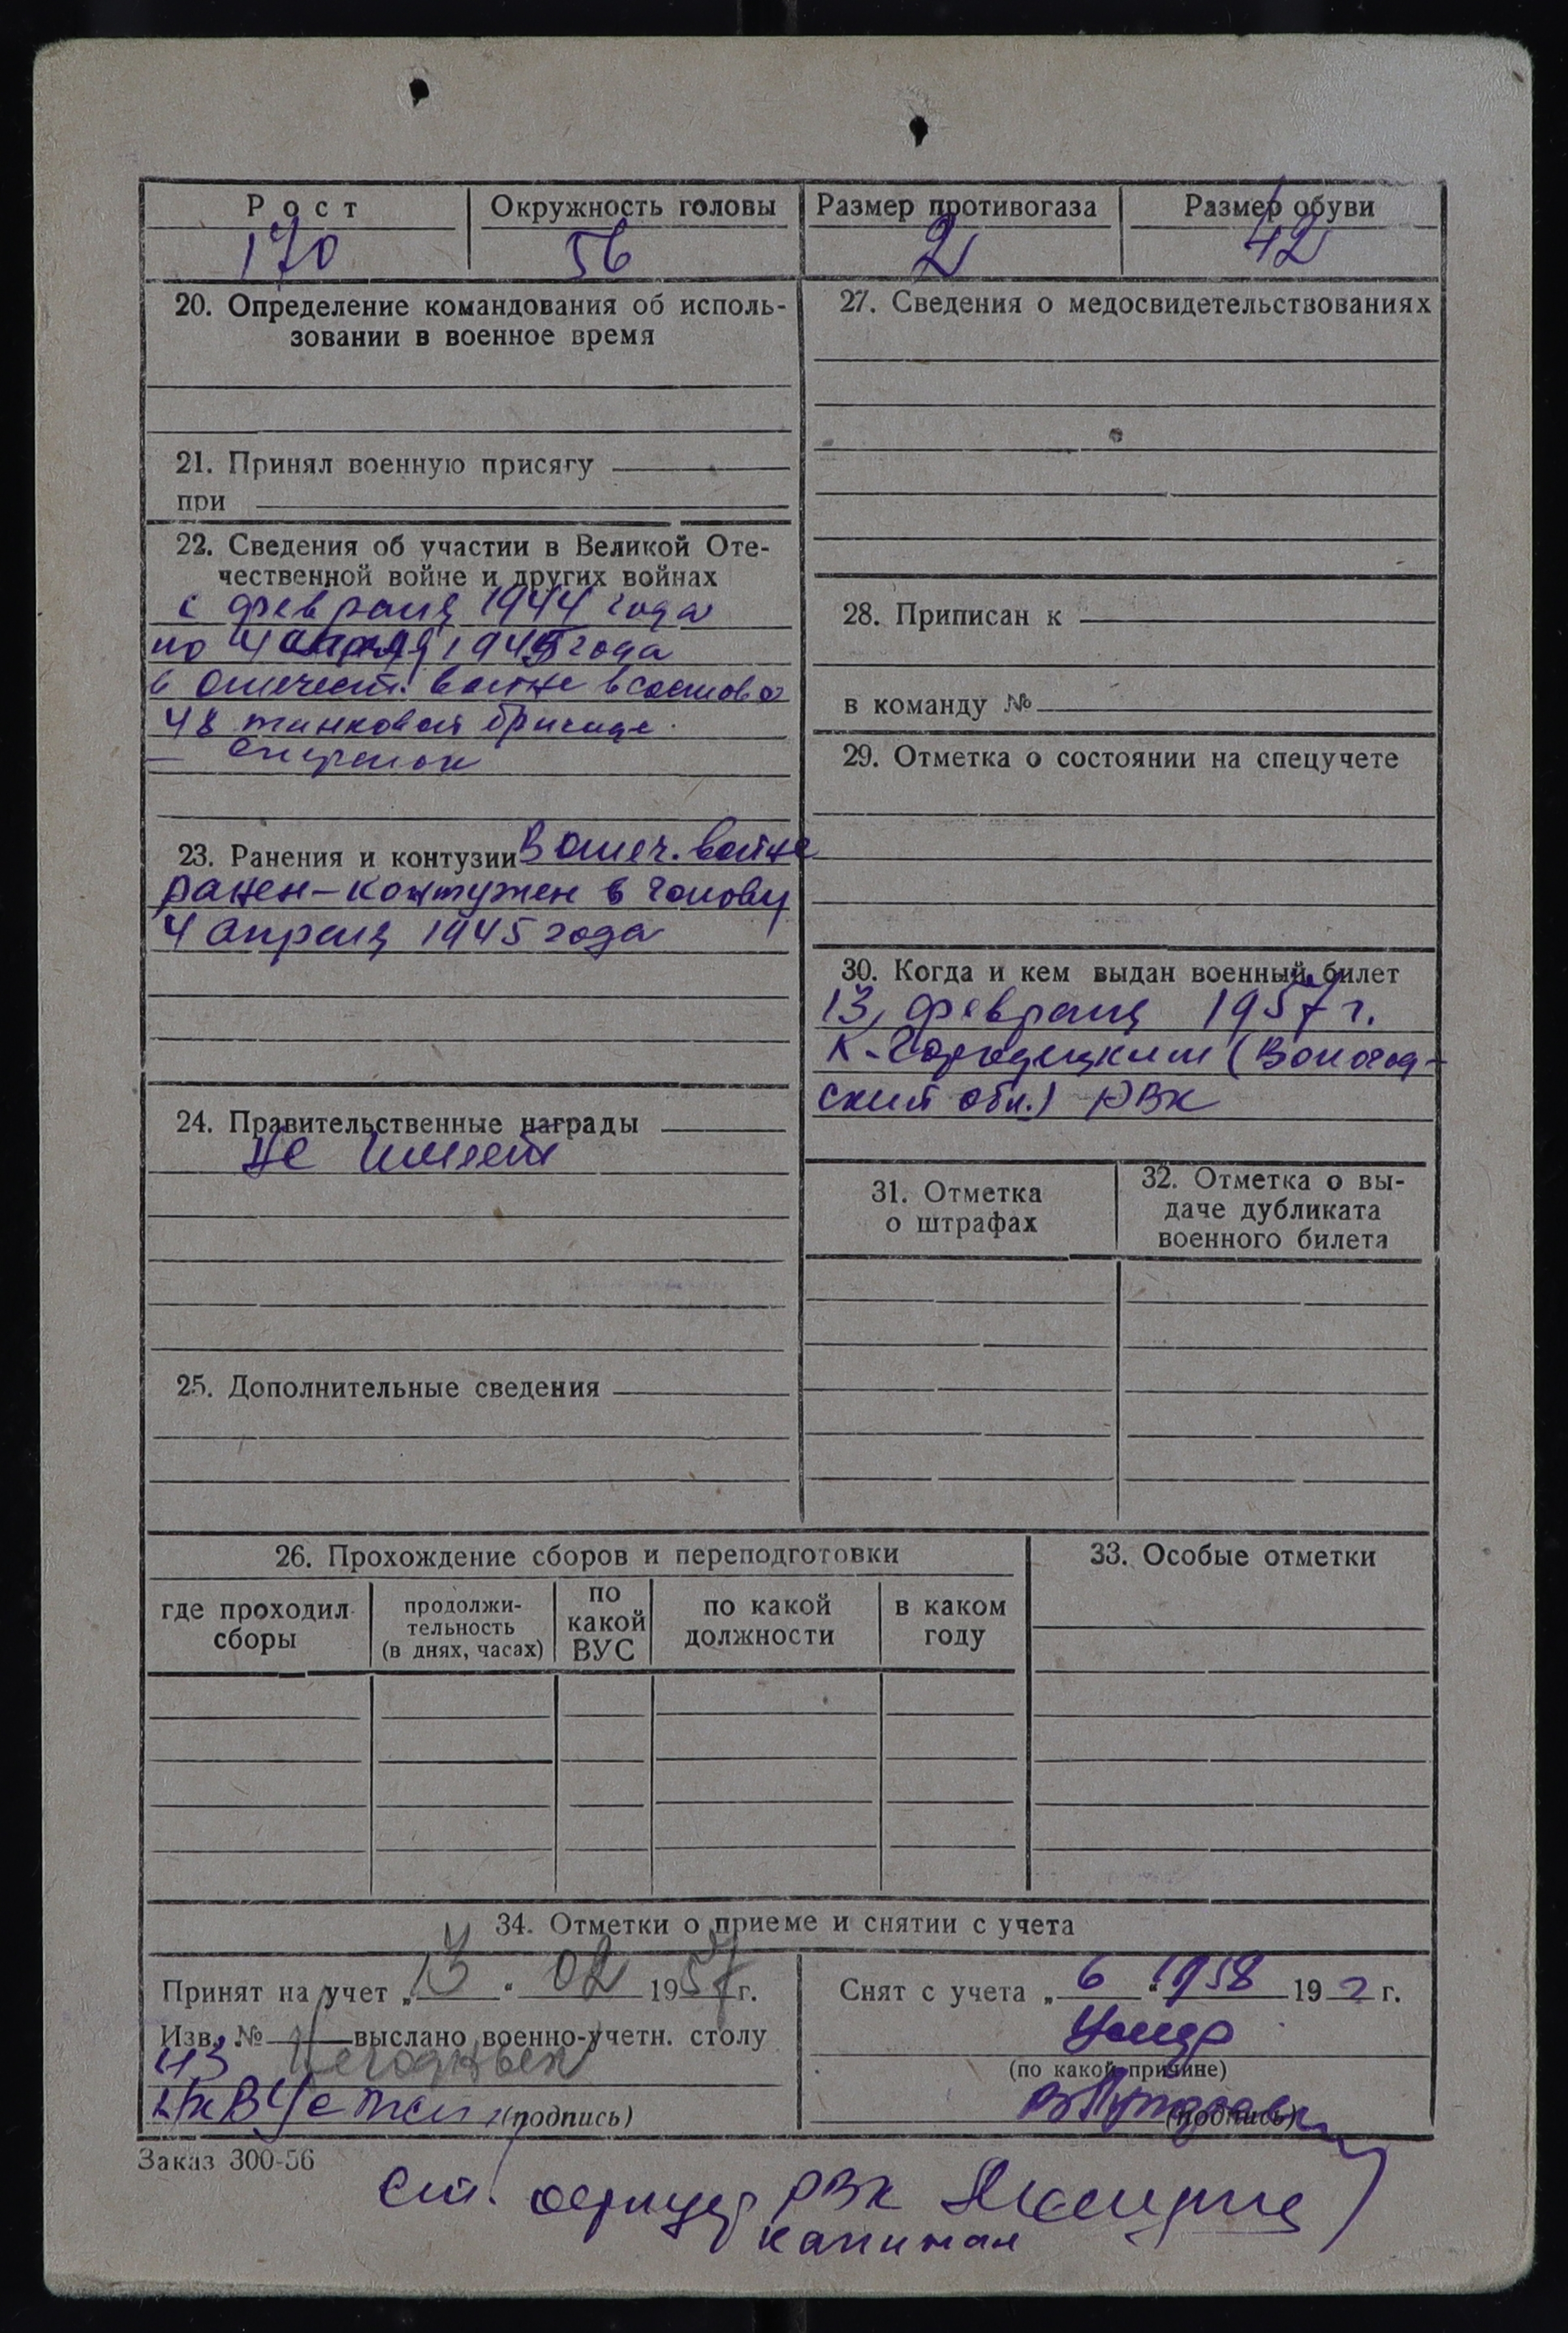 Рост
Окружность головы
Размер противогаза
Размер обуви
170
56
2
42
20. Определение командования об исполь-
зовании в военное время
21. Принял военную присягу
при
22. Сведения об участии в Великой Оте-
чественной войне и других войнах
с февраля 1944 года
по 4 апреля 1945 года
в отечест. войне в составе
48 танковой бригаде
23. Ранения и контузии В отеч. войне
ранен-контужен в голову
4 апреля 1945 года
24. Правительственные награды
Не имеет
25. Дополнительные сведения
27. Сведения о медосвидетельствованиях
28. Приписан к
в команду №
29. Отметка о состоянии на спецучете
30. Когда и кем выдан военный билет
13 февраля 1957 г.
К-Городецким (Вологод-
ской обл.) РВК
31. Отметка
о штрафах
32. Отметка о вы-
даче дубликата
военного билета
26. Прохождение сборов и переподготовки
где проходил
сборы
продолжи-
тельность
(в днях, часах)
по
какой
ВУС
по какой
должности
в каком
году
33. Особые отметки
34. Отметки о приеме и снятии с учета
Принят на учет „13“ 02 1957 г.
Изв. № выслано военно-учетн. столу
(подпись)
Снят с учета „6“ 1958 19 г.
Умер
(по какой причине)
(подпись)
Заказ 300-56
Ст. офицер РВК
капитан